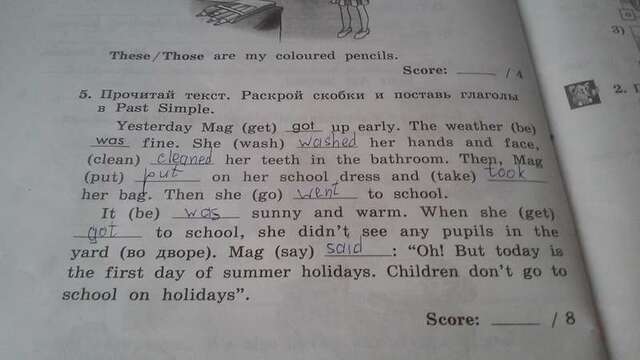 These/Those are my coloured pencils.
Score: ____ / 4
3)
5. Прочитай текст. Раскрой скобки и поставь глаголы
в Past Simple.
2.
Yesterday Mag (get) got up early. The weather (be)
was fine. She (wash) washed her hands and face,
(clean) cleaned her teeth in the bathroom. Then, Mag
(put) put on her school dress and (take) took
her bag. Then she (go) went to school.
It (be) was sunny and warm. When she (get)
got to school, she didn't see any pupils in the
yard (во дворе). Mag (say) said : “Oh! But today is
the first day of summer holidays. Children don't go to
school on holidays”.
Score: ____ / 8